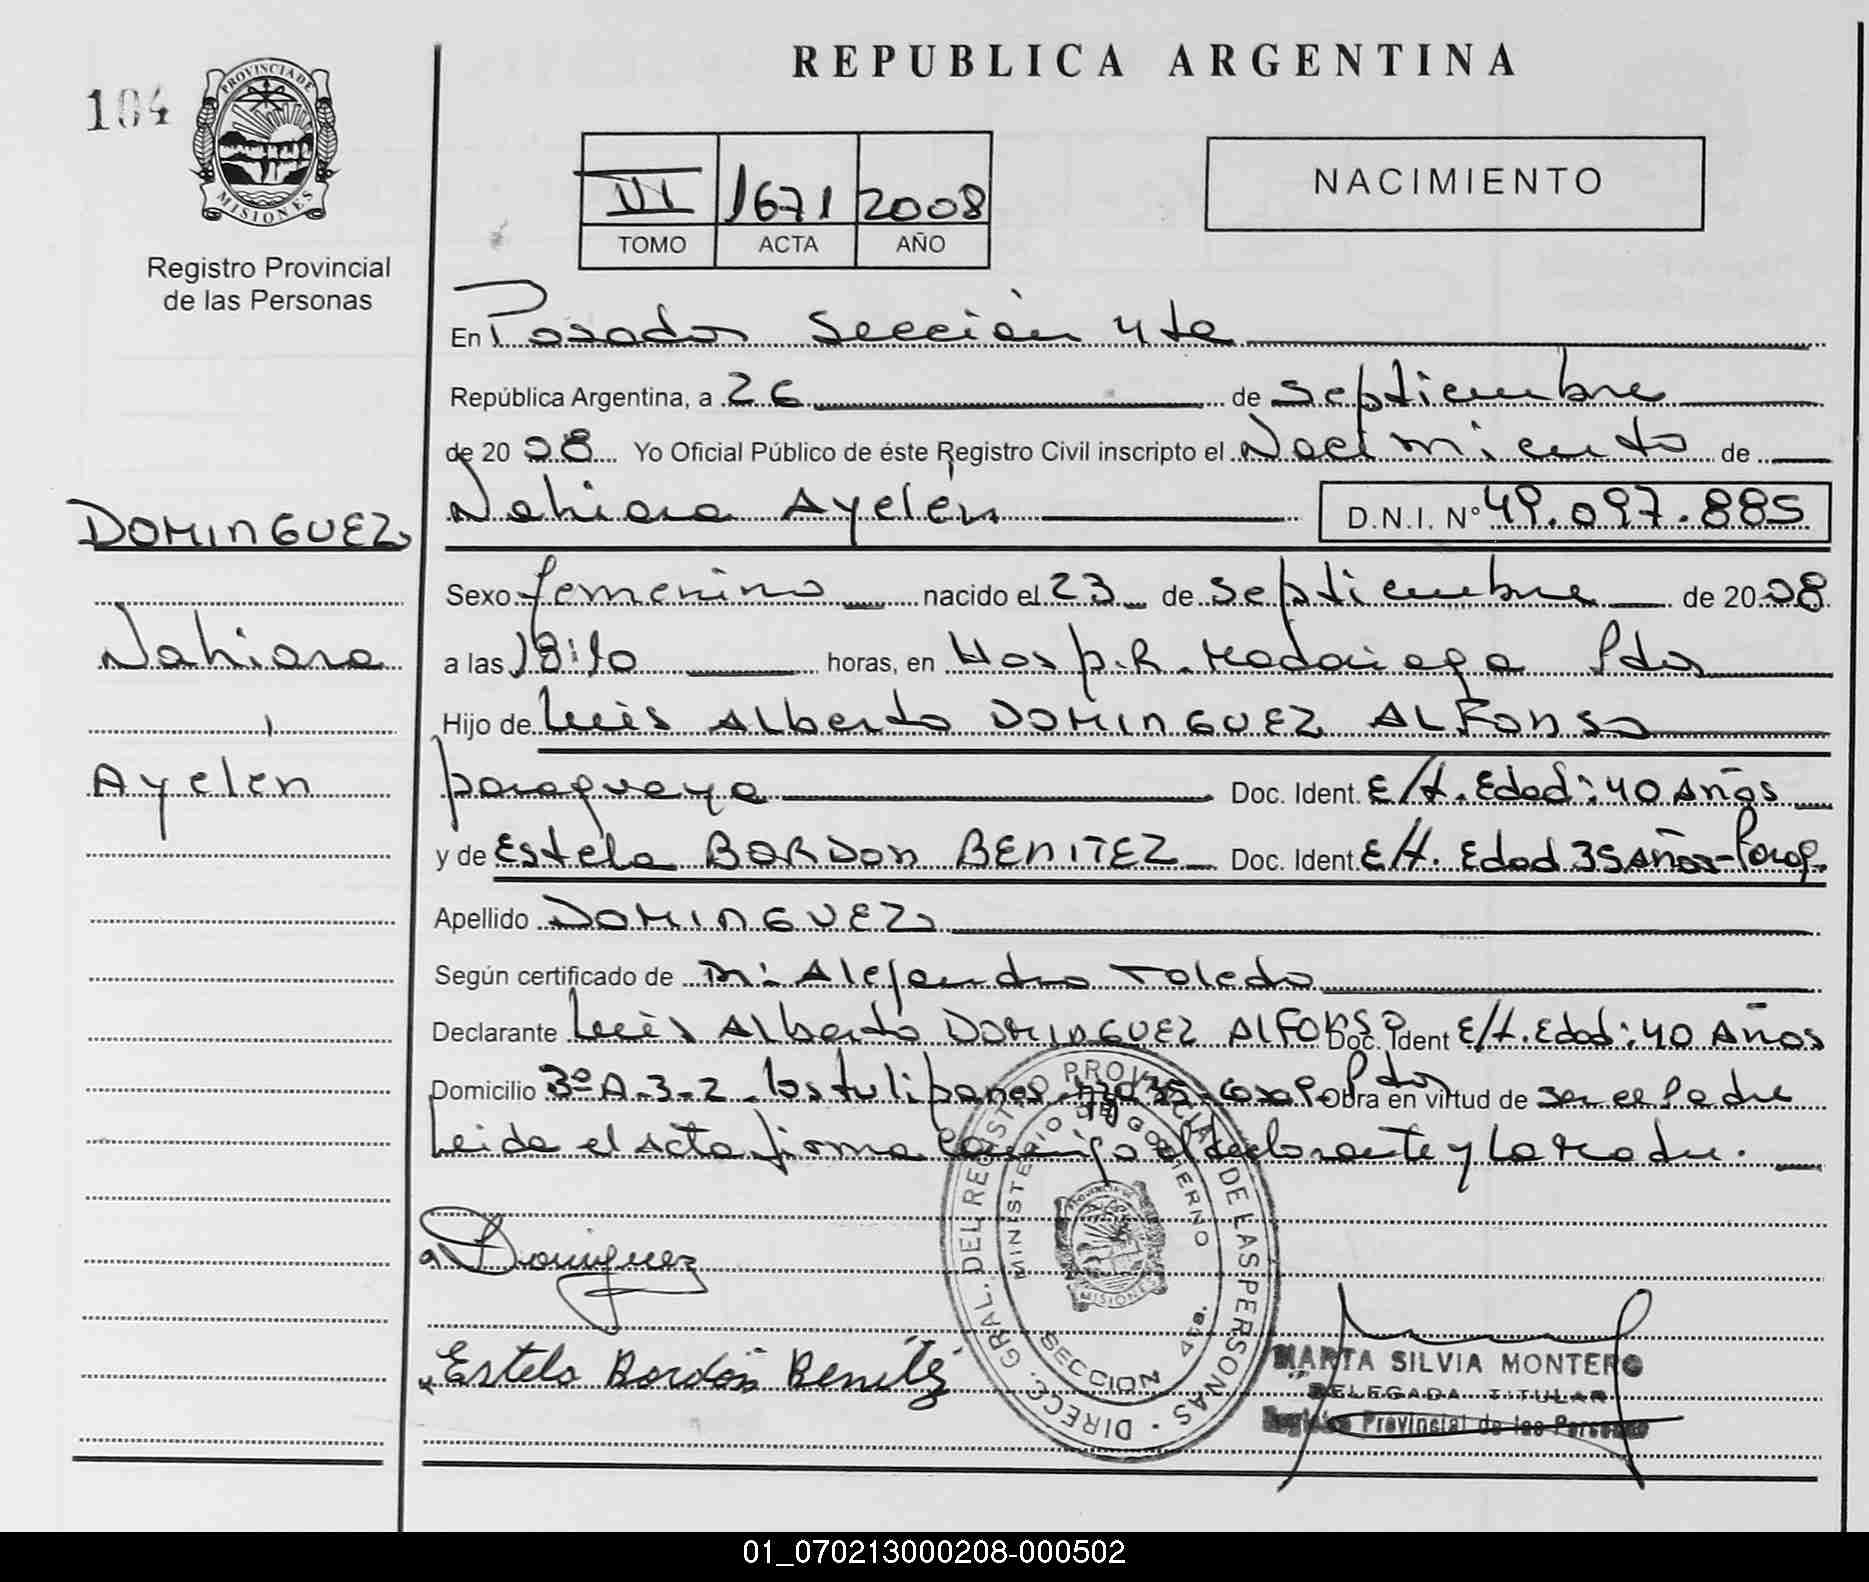 REPUBLICA ARGENTINA
104
PROVINCIA DE
MISIONES
Registro Provincial
de las Personas
III 1671 2008
TOMO ACTA AÑO
NACIMIENTO
En Posadas Sección 4ta
República Argentina, a 26 de Septiembre
de 2008 Yo Oficial Público de éste Registro Civil inscripto el Nacimiento de
Nahiara Ayelén D.N.I. N° 49.097.885
DOMINGUEZ
Nahiara
Ayelén
Sexo femenino nacido el 23 de Septiembre de 2008
a las 18:10 horas, en Hosp. R. Madariaga Pdas
Hijo de Luis Alberto DOMINGUEZ ALFONSO
paraguaya Doc. Ident. E/t. Edad: 40 Años
y de Estela BORDON BENITEZ Doc. Ident. E/t. Edad 35 años - Parag.
Apellido DOMINGUEZ
Según certificado de M: Alejandro Toledo
Declarante Luis Alberto DOMINGUEZ ALFONSO Doc. Ident E/t. Edad: 40 Años
Domicilio 3º A-3-2 los tulipanes Pdas Obra en virtud de ser el Padre
Leida el acta firma conmigo el declarante y la madre.
Dominguez
Estela Bordón Benitez
DIRECC. GRAL. DEL REGISTRO PROVINCIAL DE LAS PERSONAS
MINISTERIO DE GOBIERNO
PROVINCIA DE
MISIONES
SECCION 4ta.
MARTA SILVIA MONTERO
DELEGADA TITULAR
Registro Provincial de las Personas
01_070213000208-000502